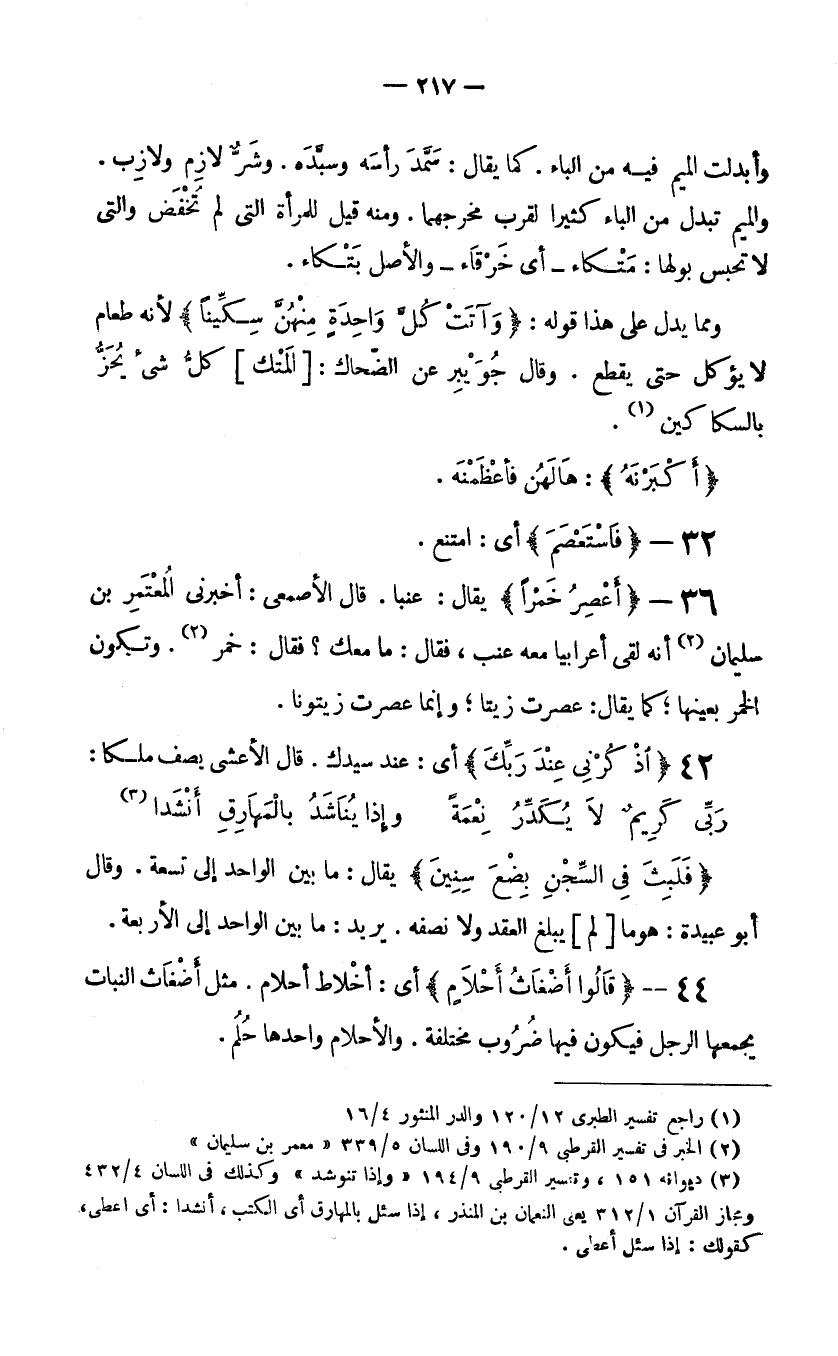 — ٢١٧ —
وأبدلت الميم فيه من الباء . كما يقال : سَمَّدَ رأسَه وسبَّدَه . وشَرٌّ لازِم ولازِب .
والميم تبدل من الباء كثيرا لقرب مخرجهما . ومنه قيل للمرأة التى لم تُخْفَض والتى
لا تحبس بولها : مَتْكاء ــ أى خَرْقَاء ــ والأصل بَتْكاء .
ومما يدل على هذا قوله : ﴿ وَآتَتْ كُلَّ وَاحِدَةٍ مِنْهُنَّ سِكِّيناً ﴾ لأنه طعام
لا يؤكل حتى يقطع . وقال جُوَيْبِر عن الضّحاك : [ المَتْك ] كلُّ شىء يُحَزُّ
بالسكاكين (١) .
﴿ أَكْبَرْنَهُ ﴾ : هَالَهُن فأعْظَمْنَه .
٣٢ — ﴿ فَاسْتَعْصَمَ ﴾ أى : امتنع .
٣٦ — ﴿ أَعْصِرُ خَمْراً ﴾ يقال : عنبا . قال الأصمعى : أخبرنى المُعْتَمِر بن
سليمان (٢) أنه لقى أعرابيا معه عنب ، فقال : ما معك ؟ فقال : خمر (٢) . وتكون
الخمر بعينها ؛ كما يقال : عصرت زيتا ؛ وإنما عصرت زيتونا .
٤٢ ﴿ ٱذْكُرْنِى عِنْدَ رَبِّكَ ﴾ أى : عند سيدك . قال الأعشى يصف ملكا :
رَبِّى كَرِيمٌ لاَ يُكَدِّرُ نِعْمَةً وإذا يُنَاشَدُ بالْمَهارِقِ أَنْشَدا (٣)
﴿ فَلَبِثَ فِى السِّجْنِ بِضْعَ سِنِينَ ﴾ يقال : ما بين الواحد إلى تسعة . وقال
أبو عبيدة : هوما [ لم ] يبلغ العقد ولا نصفه . يريد : ما بين الواحد إلى الأربعة .
٤٤ -- ﴿ قَالُوا أَضْغَاثُ أَحْلاَمٍ ﴾ أى : أخْلاط أحلام . مثل أَضْغَاث النبات
يجمعها الرجل فيكون فيها ضُرُوب مختلفة . والأحلام واحدها حُلُم .
(١) راجع تفسير الطبرى ١٢٠/١٢ والدر المنثور ١٦/٤
(٢) الخبر فى تفسير القرطبى ١٩٠/٩ وفى اللسان ٣٣٩/٥ « معمر بن سليمان »
(٣) ديوانه ١٥١ ، وتفسير القرطبى ١٩٤/٩ « وإذا تنوشد » وكذلك فى اللسان ٤٣٢/٤
ومجاز القرآن ٣١٢/١ يعنى النعمان بن المنذر ، إذا سئل بالمهارق أى الكتب ، أنشدا : أى اعطى ،
كقولك : إذا سئل أعطى .